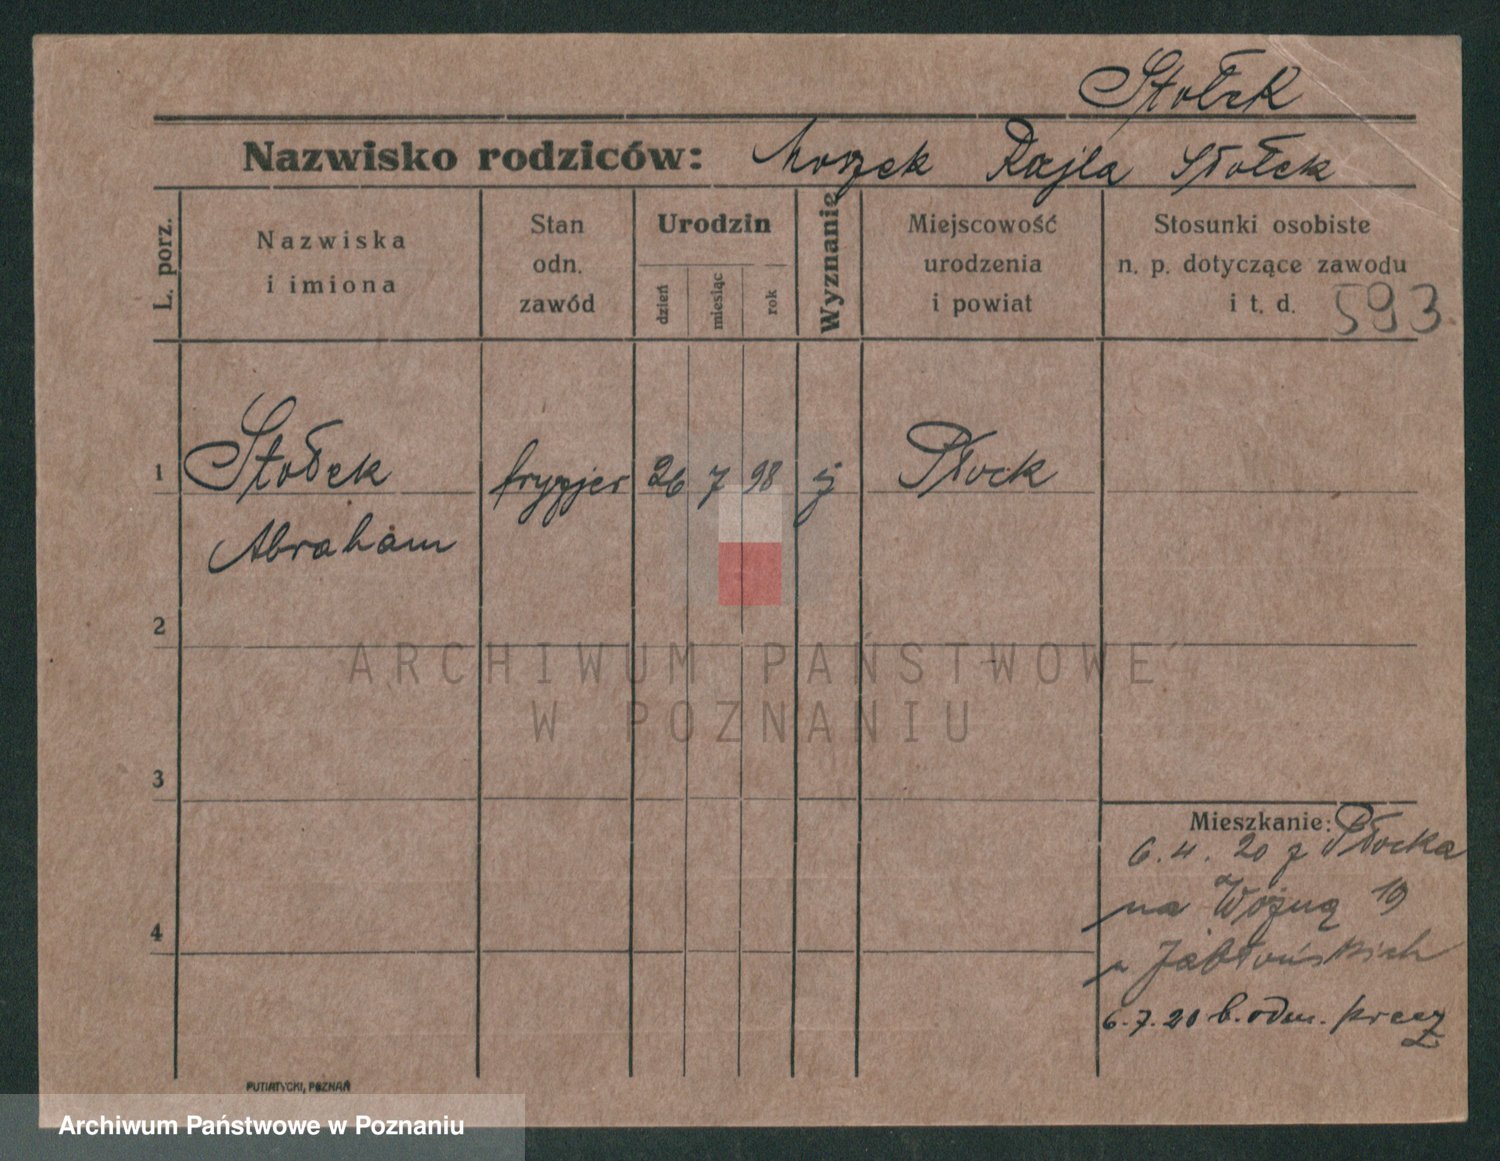 Stołek
Nazwisko rodziców: Moszek Rajla Stołek
L. porz.
Nazwiska
i imiona
Stan
odn.
zawód
Urodzin
dzień
miesiąc
rok
Wyznanie
Miejscowość
urodzenia
i powiat
Stosunki osobiste
n. p. dotyczące zawodu
i t. d. 593
1 Stołek fryzjer 26 7 98 ż Płock
Abraham
2
3
4
Mieszkanie:
6.4.20 z Płocka
na Woźną 19
u Jabłońskich
6.7.20 b. odm. precz
PUTIATYCKI, POZNAŃ
ARCHIWUM PAŃSTWOWE
W POZNANIU
Archiwum Państwowe w Poznaniu